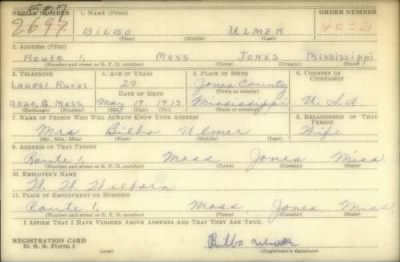 SERIAL NUMBER 1. NAME (Print) ORDER NUMBER
BILBO ULMER
(First) (Middle) (Last)
2. ADDRESS (Print)
Route 1, Moss Jones Mississippi
(Number and street or R. F. D. number) (Town) (County) (State)
3. TELEPHONE 4. AGE IN YEARS 5. PLACE OF BIRTH 6. COUNTRY OF CITIZENSHIP
Laurel Rural 28 Jones County
DATE OF BIRTH
Moss May 19 1912 Mississippi U.S.A
(Exchange) (Number) (Mo.) (Day) (Yr.) (State or country)
7. NAME OF PERSON WHO WILL ALWAYS KNOW YOUR ADDRESS 8. RELATIONSHIP OF THAT PERSON
Mrs Bilbo Ulmer Wife
(Mr., Mrs., Miss) (First) (Middle) (Last)
9. ADDRESS OF THAT PERSON
Route 1, Moss, Jones Miss
(Number and street or R. F. D. number) (Town) (County) (State)
10. EMPLOYER'S NAME
11. PLACE OF EMPLOYMENT OR BUSINESS
Route 1, Moss, Jones Miss
(Number and street or R. F. D. number) (Town) (County) (State)
I AFFIRM THAT I HAVE VERIFIED ABOVE ANSWERS AND THAT THEY ARE TRUE.
REGISTRATION CARD Bilbo Ulmer
D. S. S. Form 1 (Registrant's signature)